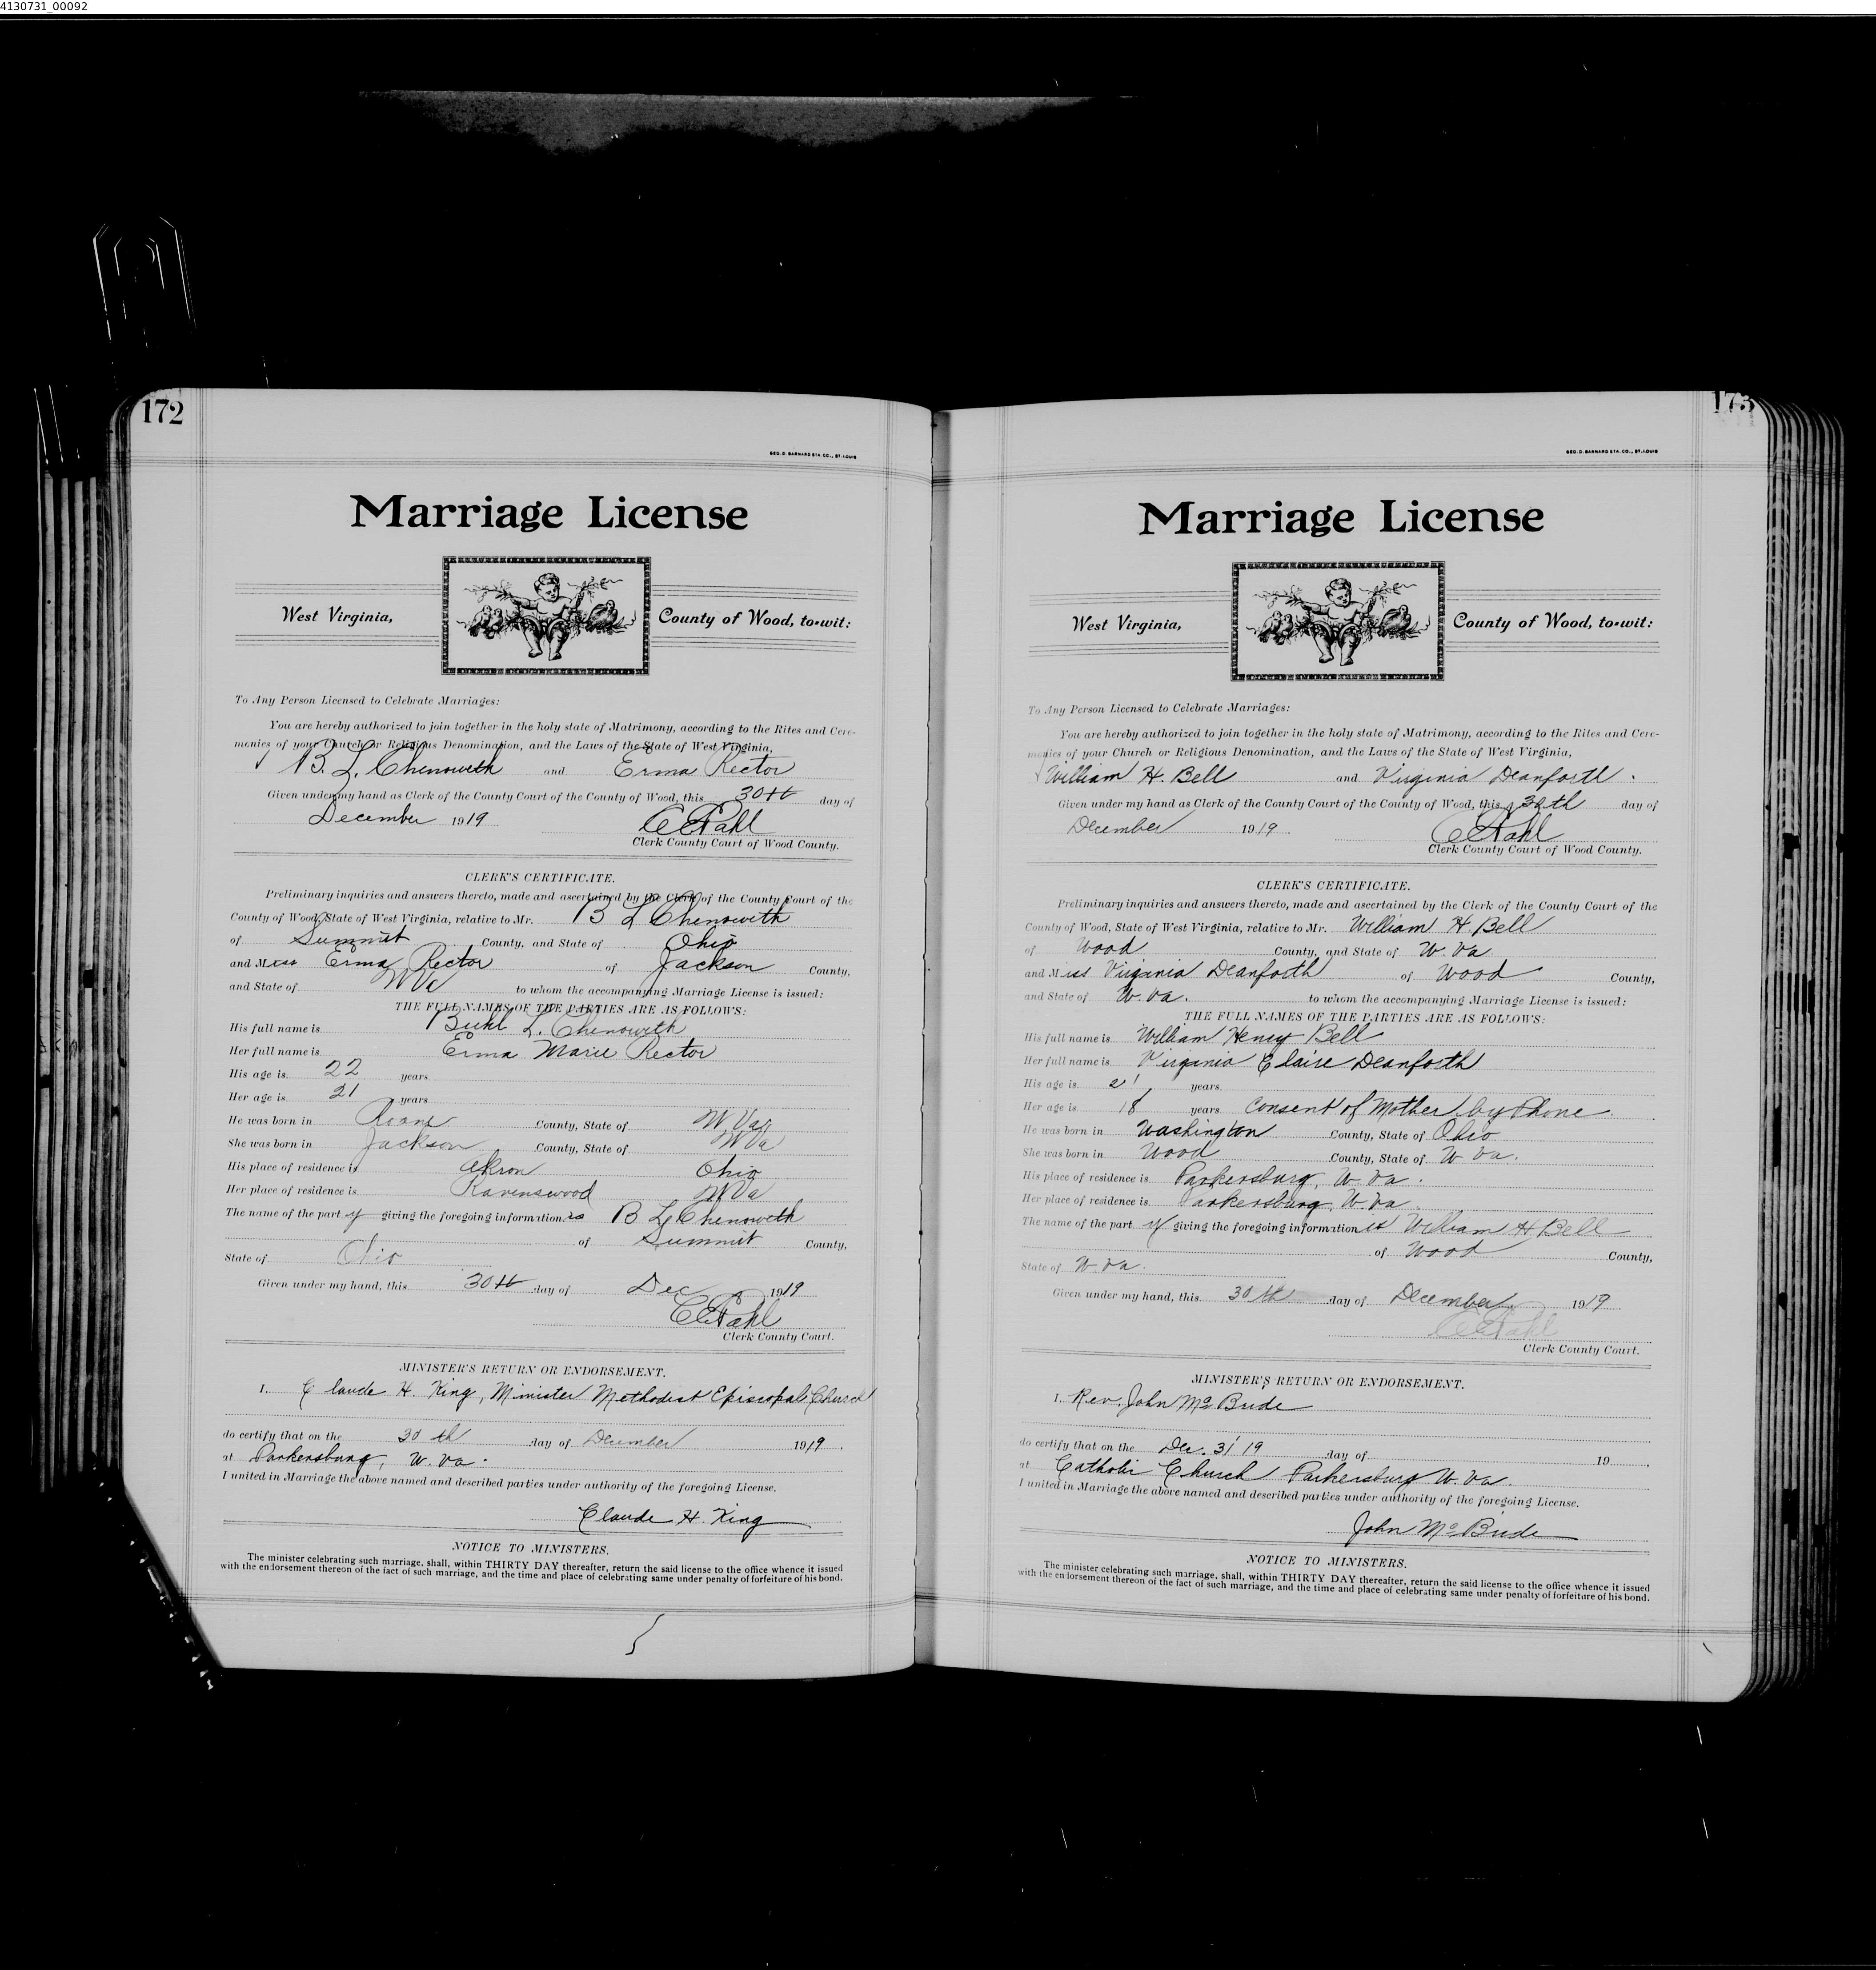 4130731_00092
172
GEO. D. BARNARD STA. CO., ST. LOUIS
Marriage License
West Virginia,
County of Wood, to-wit:
To Any Person Licensed to Celebrate Marriages:
You are hereby authorized to join together in the holy state of Matrimony, according to the Rites and Cere-
monies of your Church or Religious Denomination, and the Laws of the State of West Virginia,
B. L. Chenoweth and Erma Rector
Given under my hand as Clerk of the County Court of the County of Wood, this 30th day of
December 1919
Clerk County Court of Wood County.
CLERK'S CERTIFICATE.
Preliminary inquiries and answers thereto, made and ascertained by the Clerk of the County Court of the
County of Wood, State of West Virginia, relative to Mr. B L Chenoweth
of Summit County, and State of Ohio
and Miss Erma Rector of Jackson County,
and State of W Va to whom the accompanying Marriage License is issued:
THE FULL NAMES OF THE PARTIES ARE AS FOLLOWS:
His full name is Buhl L. Chenoweth
Her full name is Erma Marie Rector
His age is 22 years
Her age is 21 years
He was born in Roane County, State of W Va
She was born in Jackson County, State of W Va
His place of residence is Akron Ohio
Her place of residence is Ravenswood W Va
The name of the party giving the foregoing information is B L Chenoweth
of Summit County,
State of Ohio
Given under my hand, this 30th day of Dec 1919
Clerk County Court.
MINISTER'S RETURN OR ENDORSEMENT.
I. Claude H. King, Minister Methodist Episcopal Church
do certify that on the 30 th day of December 1919.
at Parkersburg, W. Va.
I united in Marriage the above named and described parties under authority of the foregoing License.
Claude H. King
NOTICE TO MINISTERS.
The minister celebrating such marriage, shall, within THIRTY DAY thereafter, return the said license to the office whence it issued
with the endorsement thereon of the fact of such marriage, and the time and place of celebrating same under penalty of forfeiture of his bond.
173
GEO. D. BARNARD STA. CO., ST. LOUIS
Marriage License
West Virginia,
County of Wood, to-wit:
To Any Person Licensed to Celebrate Marriages:
You are hereby authorized to join together in the holy state of Matrimony, according to the Rites and Cere-
monies of your Church or Religious Denomination, and the Laws of the State of West Virginia,
William H. Bell and Virginia Deanforth.
Given under my hand as Clerk of the County Court of the County of Wood, this 30th day of
December 1919
Clerk County Court of Wood County.
CLERK'S CERTIFICATE.
Preliminary inquiries and answers thereto, made and ascertained by the Clerk of the County Court of the
County of Wood, State of West Virginia, relative to Mr. William H Bell
of Wood County, and State of W. Va
and Miss Virginia Deanforth of Wood County,
and State of W. Va. to whom the accompanying Marriage License is issued:
THE FULL NAMES OF THE PARTIES ARE AS FOLLOWS:
His full name is William Henry Bell
Her full name is Virginia Claire Deanforth
His age is 21 years
Her age is 18 years Consent of Mother by Phone.
He was born in Washington County, State of Ohio
She was born in Wood County, State of W Va.
His place of residence is Parkersburg, W. Va.
Her place of residence is Parkersburg, W. Va.
The name of the party giving the foregoing information is William H Bell
of Wood County,
State of W. Va.
Given under my hand, this 30 th day of December 1919
Clerk County Court.
MINISTER'S RETURN OR ENDORSEMENT.
I. Rev. John McBride
do certify that on the Dec. 31 19 day of 19
at Catholic Church Parkersburg W. Va.
I united in Marriage the above named and described parties under authority of the foregoing License.
John McBride
NOTICE TO MINISTERS.
The minister celebrating such marriage, shall, within THIRTY DAY thereafter, return the said license to the office whence it issued
with the endorsement thereon of the fact of such marriage, and the time and place of celebrating same under penalty of forfeiture of his bond.